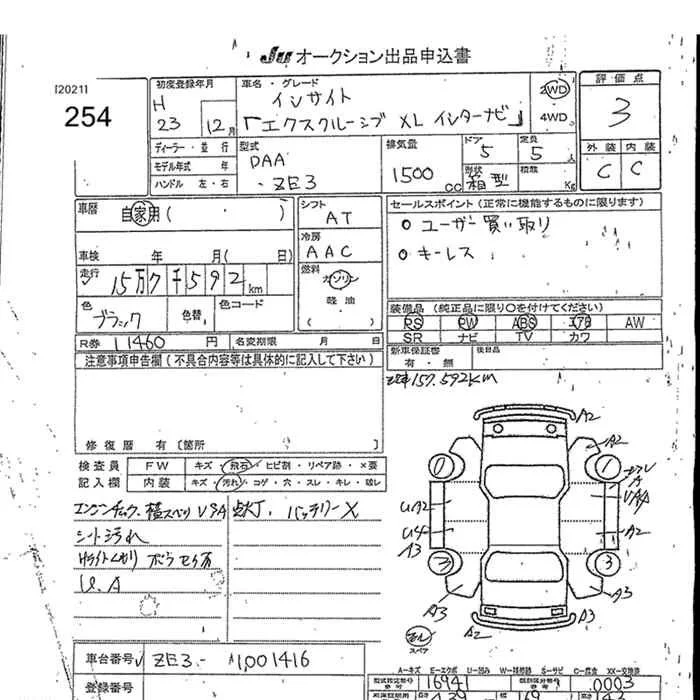 JU オークション出品申込書
[2021]
254
初度登録年月
H 23 12月
車名・グレード
インサイト
「エクスクルーシブ XL インターナビ」
2WD
4WD
評価点
3
外装 内装
C C
ディーラー・並行
モデル年式 年
ハンドル 左・右
型式
DAA
-ZE3
排気量
1500 CC
ドア
5
定員
5 人
形状
箱型
積載
Kg
車歴 自家用( )
シフト
AT
冷房
AAC
燃料
ガソリン
軽油
車検 年 月( 日)
走行
15万7千592km
色
ブラック
色替
色コード
セールスポイント(正常に機能するものに限ります)
○ ユーザー買い取り
○ キーレス
装備品(純正品に限り○を付けてください)
PS PW ABS エアB AW
SR ナビ TV カワ
R券 11460 円
名変期限 月 日
新車保証書
有・無
後日品
157,592km
注意事項申告欄(不具合内容等は具体的に記入して下さい)
修復歴 有〔箇所
検査員
記入欄
FW キズ・飛石・ヒビ割・リペア跡・×要
内装 キズ・汚れ・コゲ・穴・スレ・キレ・破レ
点灯、バッテリーX
シート汚れ
U、A
A2
A2
1
A2
A3
A3
A2
A3
3
UA2
U4
A3
スペア
A-キズ E-エクボ U-凹み W-補修跡 S-サビ C-腐食 XX-交換済
車台番号 ZE3-1001416
登録番号
型式指定番号 16941
類別区分番号 0003